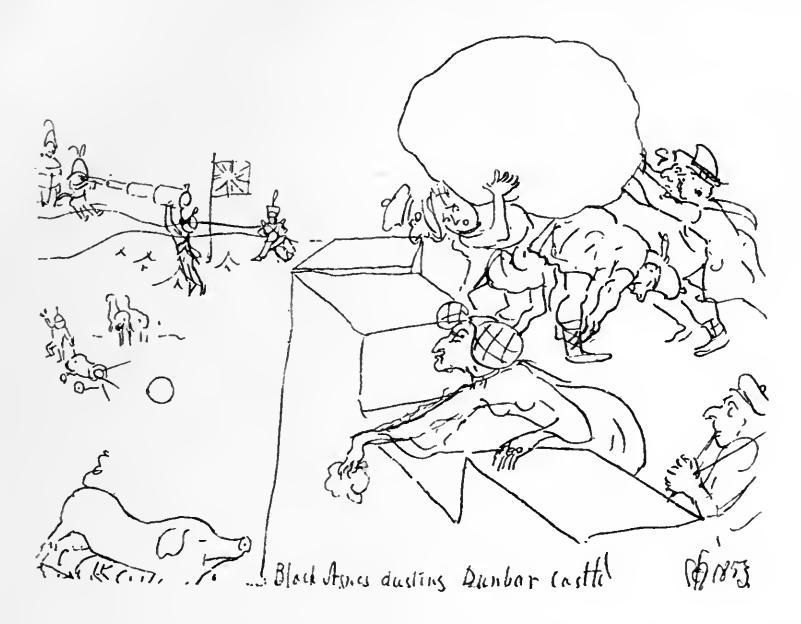 Black Agnes dusting Dunbar Castle
1853